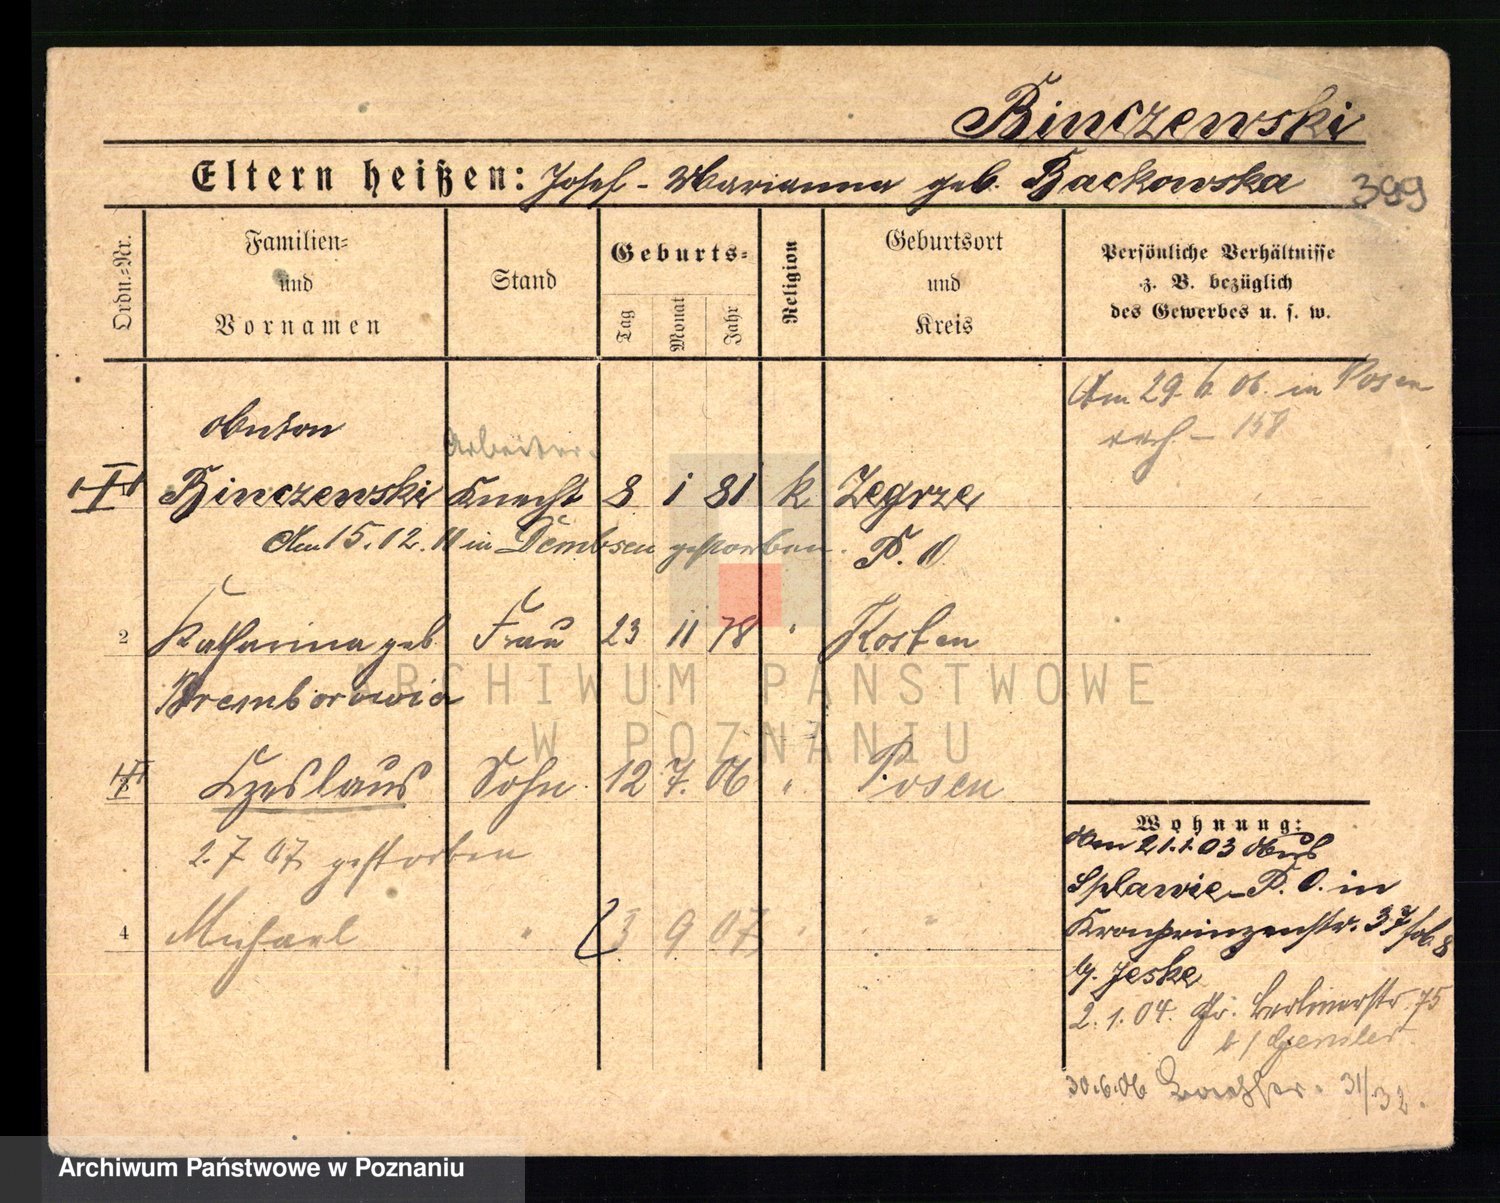 Binczewski
Eltern heißen: Josef - Marianna geb. Backowska 399
Ordn.-Nr.
Familien-
und
Vornamen
Stand
Geburts-
Tag
Monat
Jahr
Religion
Geburtsort
und
Kreis
Persönliche Verhältnisse
z. B. bezüglich
des Gewerbes u. s. w.
Am 29. 6. 06. in Posen
158
Anton
Arbeiter.
Binczewski Knecht 8 1 81 k Zegrze
Am 15. 12. 11 in Dembsen gestorben. P. O.
2 Katharina geb. Frau 23 11 78 " Kosten
3 Czeslaus Sohn 12 7. 06 " Posen
2. 7. 07 gestorben
4 Michael " 3 9 07 " "
Wohnung:
Am 21.1.03 Aus
Splawie P. O. in
Kronprinzenstr. 37
b. Jeske
2. 1. 04. Gr. Berlinerstr. 75
b/ Gensler.
30.6.06 31/32.
ARCHIWUM PAŃSTWOWE
W POZNANIU
Archiwum Państwowe w Poznaniu